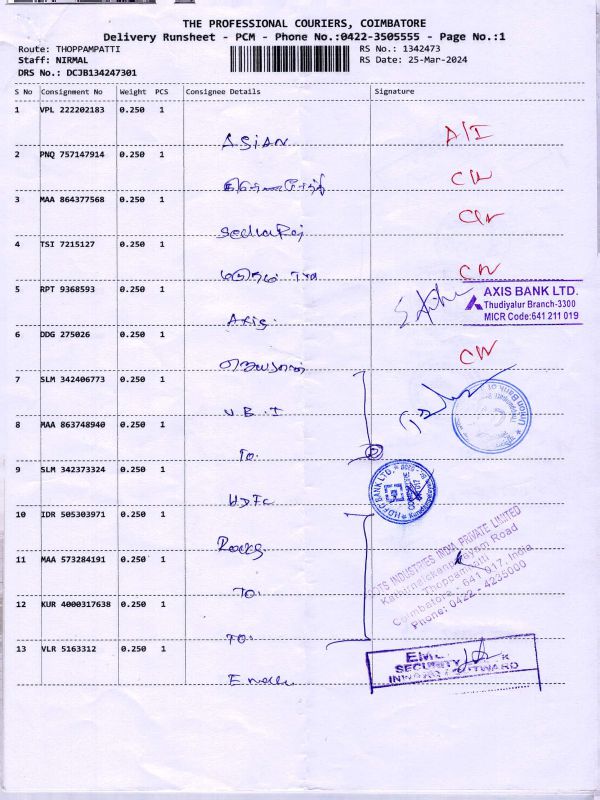 THE PROFESSIONAL COURIERS, COIMBATORE
Delivery Runsheet - PCM - Phone No.:0422-3505555 - Page No.:1
Route: THOPPAMPATTI
RS No.: 1342473
Staff: NIRMAL
RS Date: 25-Mar-2024
DRS No.: DCJB134247301
S No Consignment No Weight PCS Consignee Details Signature
1 VPL 222202183 0.250 1
ASIAN A/I
2 PNQ 757147914 0.250 1
CW
3 MAA 864377568 0.250 1
4 TSI 7215127 0.250 1
CW
5 RPT 9368593 0.250 1
AXIS BANK LTD.
Thudiyalur Branch-3300
MICR Code:641 211 019
Axis.
6 DDG 275026 0.250 1
CW
7 SLM 342406773 0.250 1
U.B.I
8 MAA 863748940 0.250 1
To.
9 SLM 342373324 0.250 1
HDFC BANK LTD.
HDFC
10 IDR 505303971 0.250 1
Roots
ROOTS INDUSTRIES INDIA PRIVATE LIMITED
Kathirnaickenpalayam Road
Thoppampatti
Coimbatore - 641 017. India
Phone: 0422 - 4235000
11 MAA 573284191 0.250 1
To.
12 KUR 4000317638 0.250 1
To.
13 VLR 5163312 0.250 1
SECURITY